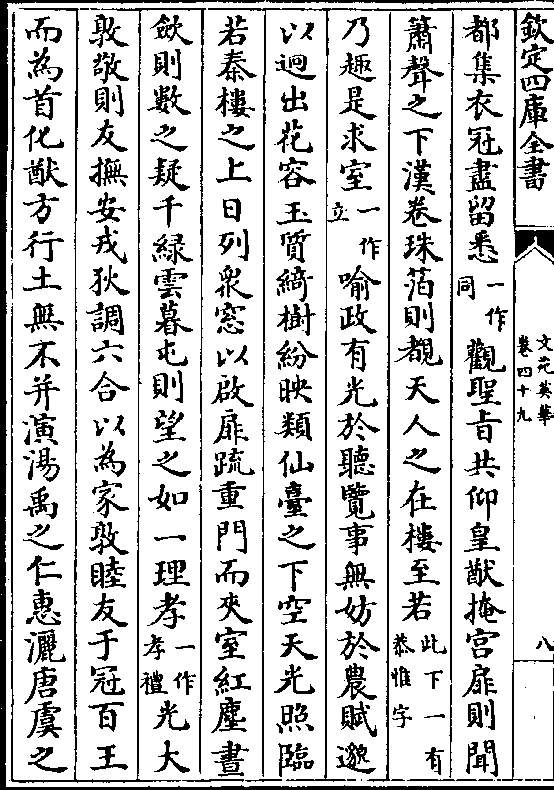 欽定四庫全書
文苑英華
卷四十九
八
都集衣冠盡留悉一作同觀聖旨共仰皇猷掩宮扉則聞
簫聲之下漢卷珠箔則覩天人之在樓至若此下一有恭惟字
乃趣是求室一作立喻政有光於聽覽事無妨於農賦邈
以迥出花容玉質綺樹紛映類仙臺之下空天光照臨
若秦樓之上日列衆窓以啟扉疏重門而夾室紅塵晝
斂則數之疑千緑雲暮屯則望之如一理孝一作孝禮光大
敦敬則友撫安戎狄調六合以為家敦睦友于冠百王
而為首化猷方行土無不并演湯禹之仁惠灑唐虞之